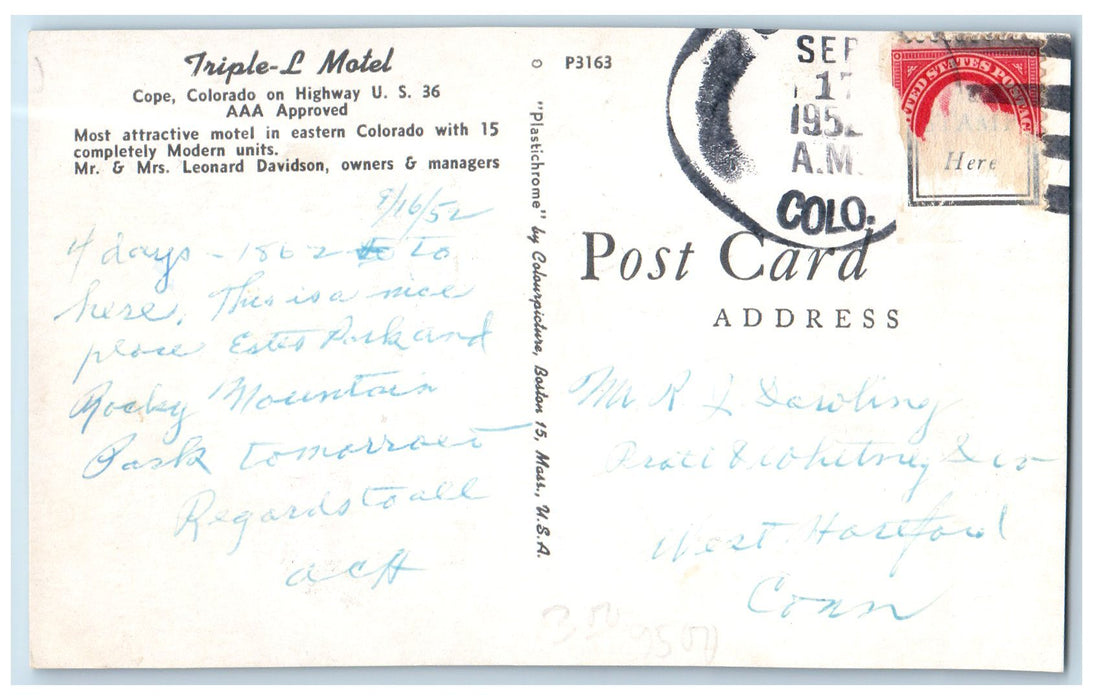 Triple-L Motel
Cope, Colorado on Highway U. S. 36
AAA Approved
Most attractive motel in eastern Colorado with 15
completely Modern units.
Mr. & Mrs. Leonard Davidson, owners & managers
9/16/52
4 days - 1862 to
here, This is a nice
place Estes Park and
Rocky Mountain
Park tomorrow
Regards to all
ACH
P3163
"Plastichrome" by Colourpicture, Boston 15, Mass., U.S.A.
SEP
17
195
A.M.
COLO.
UNITED STATES POSTAG
Here
Post Card
ADDRESS
Mr R J Dowling
Pratt & Whitney Div
West Hartford
Conn